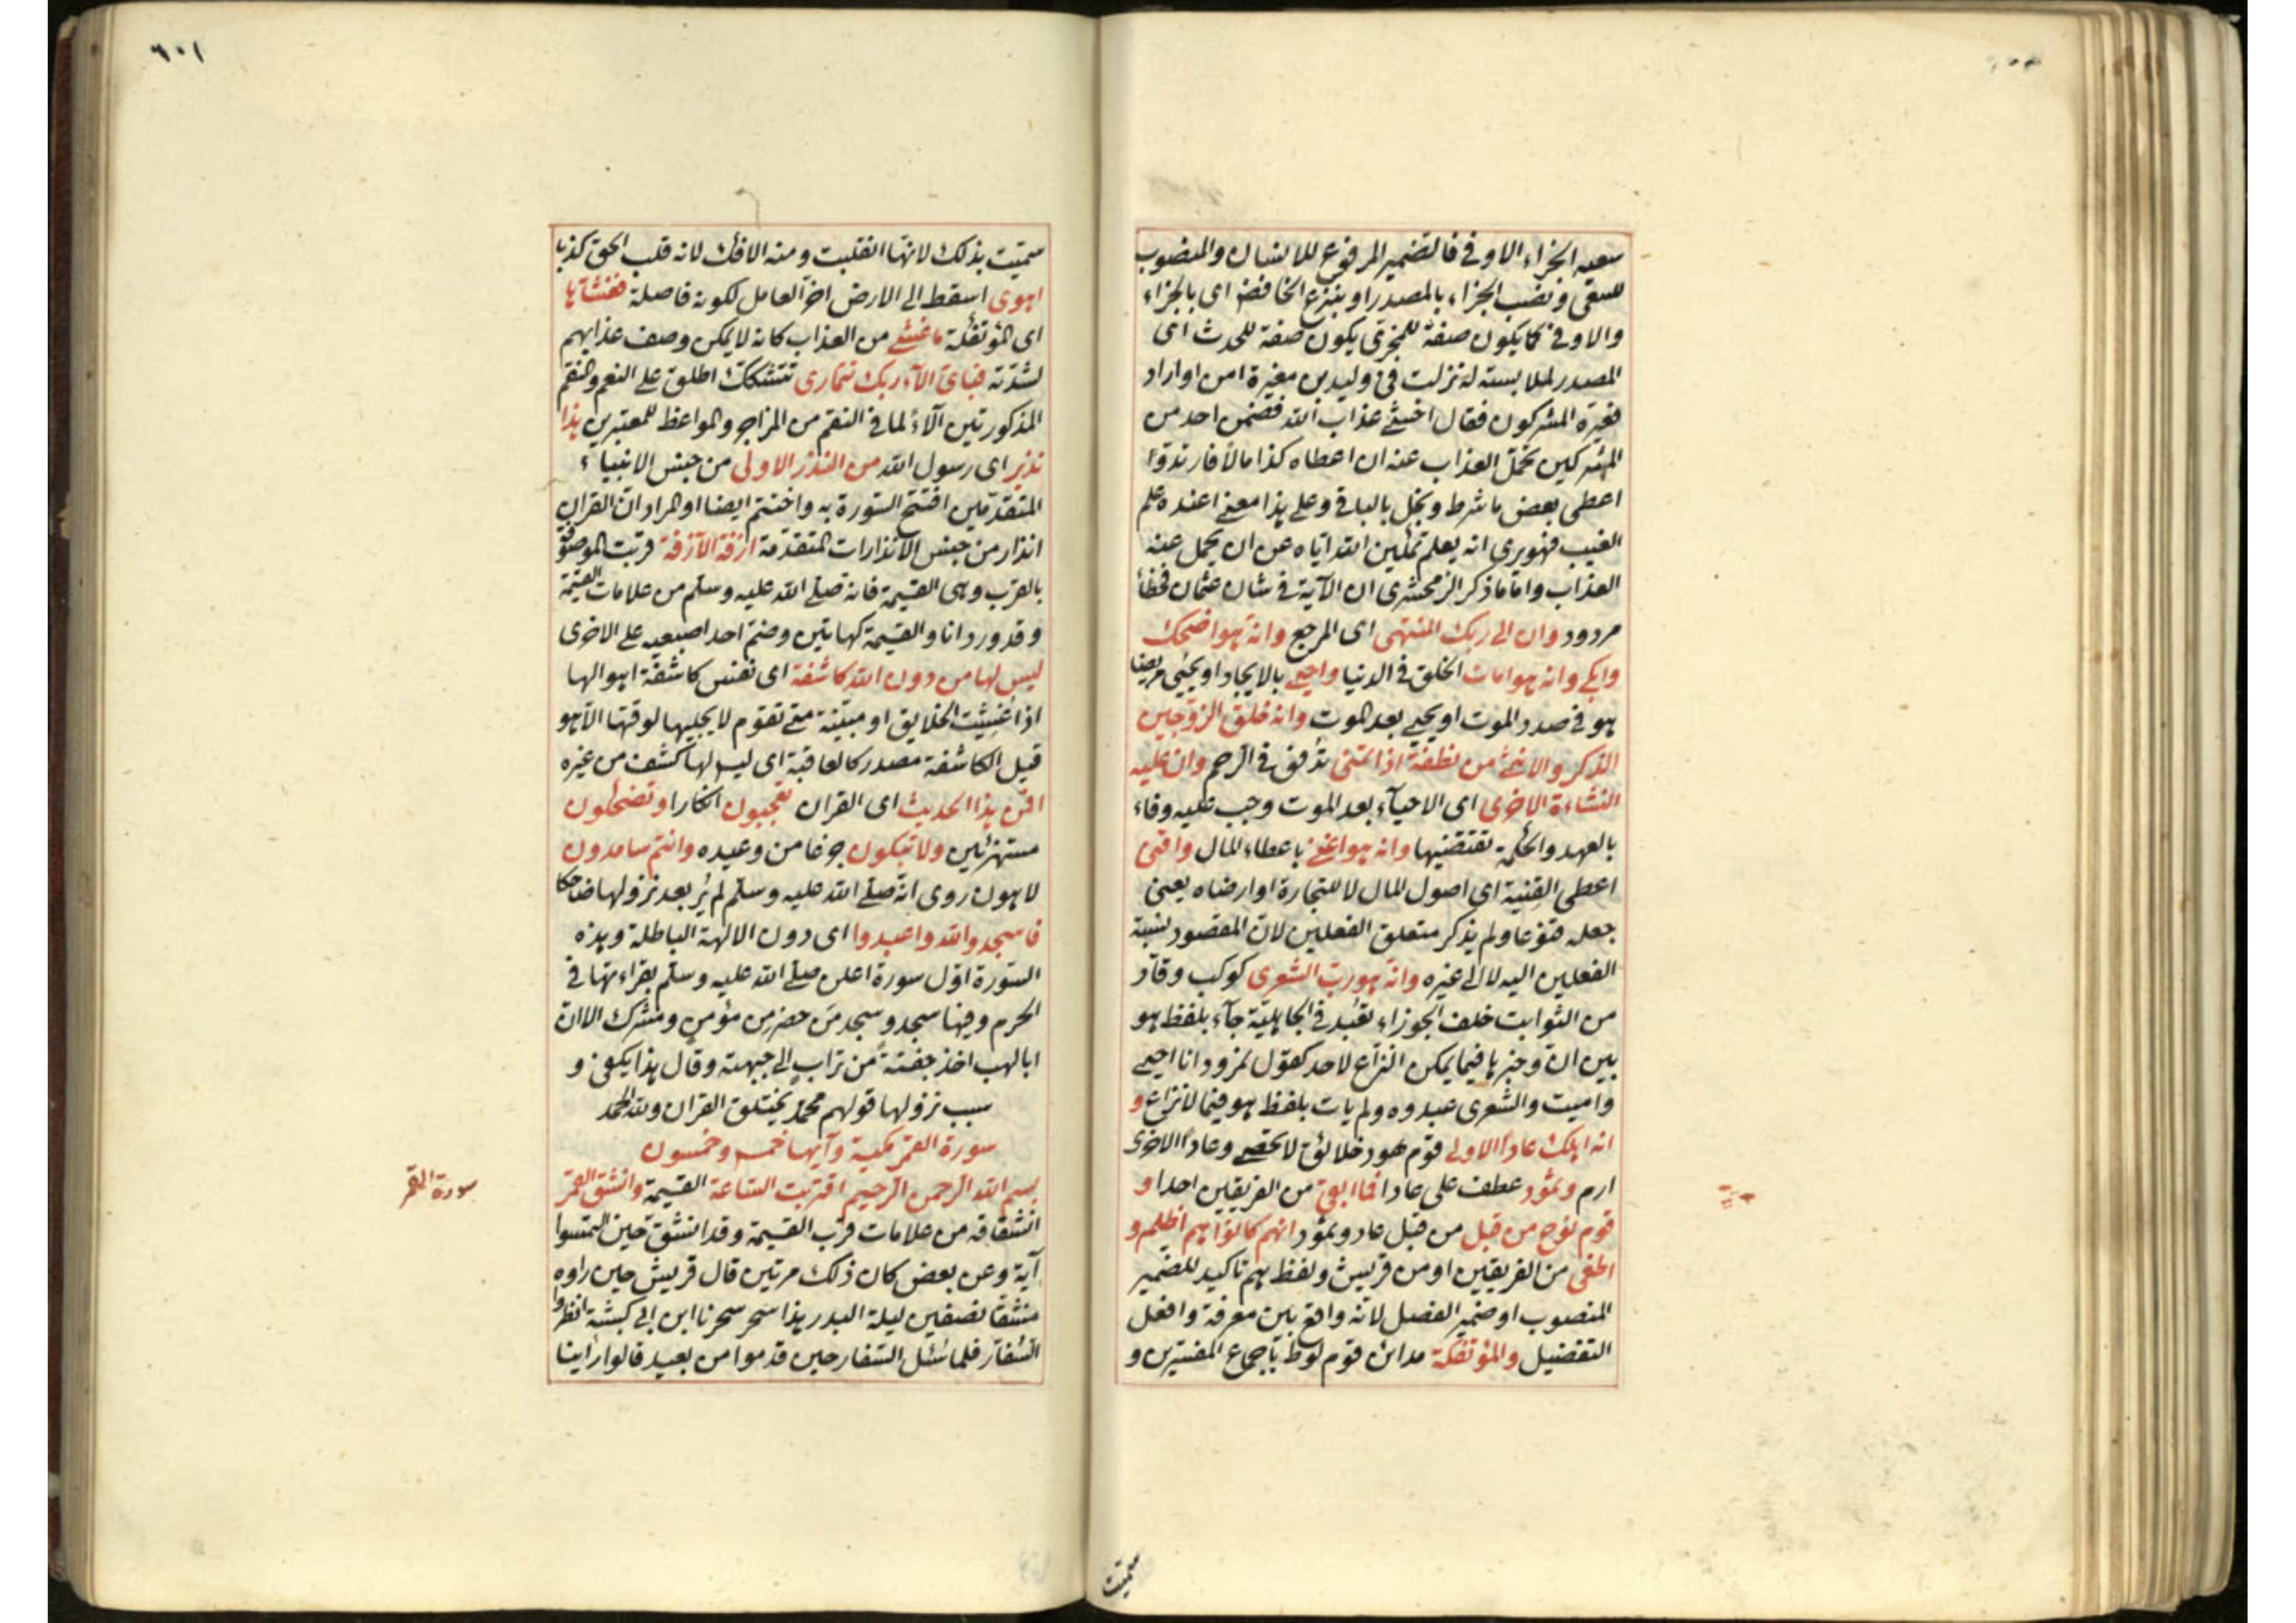 سعيه الجزاء الاوفى فالضمير المرفوع للانسان والمنصوب
للسعى ونصب الجزاء بالمصدر او بنزع الخافض اى بالجزاء
والاوفى كما يكون صفة للمجزى يكون صفة للحدث اى
المصدر لملابسته له نزلت فى وليد بن مغيرة امن او اراد
فعيره المشركون فقال اخشى عذاب الله فضمن احد من
المشركين تحمل العذاب عنه ان اعطاه كذا مالا فارتد و
اعطى بعض ما شرط وبخل بالباقى وعلى هذا معنى اعنده علم
الغيب فهو يرى انه يعلم الله اياه عن ان يحمل عنه
العذاب واما ما ذكر الزمخشرى ان الآية فى شان عثمان فخطأ
مردود وان الى ربك المنتهى اى المرجع وانه هو اضحك
وابكى وانه هو امات الخلق فى الدنيا واحيى بالايجاد او يحيى مريضا
هو فى صدد الموت او يحيى بعد الموت وانه خلق الزوجين
الذكر والانثى من نطفة اذا تمنى تدفق فى الرحم وان عليه
النشاءة الاخرى اى الاحيآء بعد الموت وجب عليه وفاء
بالعهد والحكمة تقتضيها وانه هو اغنى باعطاء المال واقنى
اعطى القنية اى اصول المال لا للتجارة او ارضاه يعنى
جعله قنوعا ولم يذكر متعلق الفعلين لان المقصود نسبة
الفعلين اليه لا الى غيره وانه هو رب الشعرى كوكب وقاد
من الثوابت خلف الجوزاء تعبد فى الجاهلية جآء بلفظ هو
بين ان وخبرها فيما يمكن النزاع لاحد كقول نمرود انا احيى
واميت والشعرى عبدوه ولم يات بلفظ هو فيما لا نزاع و
انه اهلك عادا الاولى قوم هود خلائق لا تحصى وعادا الاخرى
ارم وثمود عطف على عادا فما ابقى من الفريقين احدا و
قوم نوح من قبل من قبل عاد وثمود انهم كانوا هم اظلم و
اطغى من الفريقين او من قريش ولفظ هم تاكيد للضمير
المنصوب او ضمير الفصل لانه واقع بين معرفة وافعل
التفضيل والمؤتفكة مدائن قوم لوط باجماع المفسرين و
سميت
٦٠١
سميت بذلك لانها انقلبت ومنه الافك لانه قلب الحق كذبا
اهوى اسقط الى الارض اخر العامل لكونه فاصلة فغشاها
اى المؤتفكة ما غشى من العذاب كانه لا يمكن وصف عذابهم
لشدته فباى الآء ربك تتمارى تتشكك اطلق على النعم والنقم
المذكورتين الآء لما فى النقم من المزاجر والمواعظ للمعتبرين هذا
نذير اى رسول الله من النذر الاولى من جنس الانبياء
المتقدمين افتتح السورة به واختتم ايضا او المراد ان القران
انذار من جنس الانذارات المتقدمة ازفة الآزفة قربت الموصوفة
بالقرب وهى القيمة فانه صلى الله عليه وسلم من علامات القيمة
وقد ورد انا والقيمة كهاتين وضم احد اصبعيه على الاخرى
ليس لها من دون الله كاشفة اى نفس كاشفة اهوالها
اذا غشيت الخلايق او مبينة متى تقوم لا يجليها لوقتها الا هو
قيل الكاشفة مصدر كالعاقبة اى ليس لها كشف من غيره
افمن هذا الحديث اى القران تعجبون انكارا وتضحكون
مستهزئين ولا تبكون خوفا من وعيده وانتم سامدون
لاهون روى انه صلى الله عليه وسلم لم ير بعد نزولها ضاحكا
فاسجدوا لله واعبدوا اى دون الالهة الباطلة وهذه
السورة اول سورة اعلن صلى الله عليه وسلم بقراءتها فى
الحرم وفيها سجد وسجد من حضر من مؤمن ومشرك الا ان
ابا لهب اخذ حفنة من تراب الى جبهته وقال هذا يكفى و
سبب نزولها قولهم محمد يختلق القران ولله الحمد
سورة القمر مكية وآيها خمس وخمسون
بسم الله الرحمن الرحيم اقتربت الساعة القيمة وانشق القمر
انشقاقه من علامات قرب القيمة وقد انشق حين التمسوا
آية وعن بعض كان ذلك مرتين قال قريش حين راوه
منشقا نصفين ليلة البدر هذا سحر سحرنا ابن ابى كبشة انظروا
السفار فلما سئل السفار حين قدموا من بعيد قالوا راينا
سورة القمر